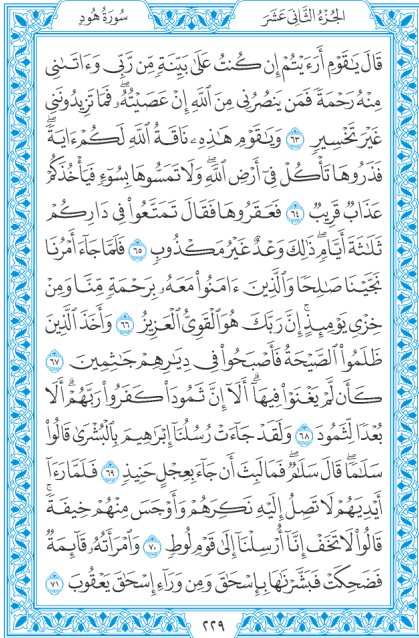 الجزء الثاني عشر
سورة هود
قَالَ يَٰقَوْمِ أَرَءَيْتُمْ إِن كُنتُ عَلَىٰ بَيِّنَةٍ مِّن رَّبِّي وَءَاتَىٰنِي
مِنْهُ رَحْمَةً فَمَن يَنصُرُنِي مِنَ ٱللَّهِ إِنْ عَصَيْتُهُۥۖ فَمَا تَزِيدُونَنِي
غَيْرَ تَخْسِيرٍ ٦٣ وَيَٰقَوْمِ هَٰذِهِۦ نَاقَةُ ٱللَّهِ لَكُمْ ءَايَةًۖ
فَذَرُوهَا تَأْكُلْ فِيٓ أَرْضِ ٱللَّهِۖ وَلَا تَمَسُّوهَا بِسُوٓءٍ فَيَأْخُذَكُمْ
عَذَابٌ قَرِيبٌ ٦٤ فَعَقَرُوهَا فَقَالَ تَمَتَّعُوا۟ فِي دَارِكُمْ
ثَلَٰثَةَ أَيَّامٍۖ ذَٰلِكَ وَعْدٌ غَيْرُ مَكْذُوبٍ ٦٥ فَلَمَّا جَآءَ أَمْرُنَا
نَجَّيْنَا صَٰلِحًا وَٱلَّذِينَ ءَامَنُوا۟ مَعَهُۥ بِرَحْمَةٍ مِّنَّا وَمِنْ
خِزْيِ يَوْمِئِذٍۚ إِنَّ رَبَّكَ هُوَ ٱلْقَوِيُّ ٱلْعَزِيزُ ٦٦ وَأَخَذَ ٱلَّذِينَ
ظَلَمُوا۟ ٱلصَّيْحَةُ فَأَصْبَحُوا۟ فِي دِيَٰرِهِمْ جَٰثِمِينَ ٦٧
كَأَن لَّمْ يَغْنَوْا۟ فِيهَآۗ أَلَآ إِنَّ ثَمُودَا۟ كَفَرُوا۟ رَبَّهُمْۗ أَلَا
بُعْدًا لِّثَمُودَ ٦٨ وَلَقَدْ جَآءَتْ رُسُلُنَآ إِبْرَٰهِيمَ بِٱلْبُشْرَىٰ قَالُوا۟
سَلَٰمًاۖ قَالَ سَلَٰمٌۖ فَمَا لَبِثَ أَن جَآءَ بِعِجْلٍ حَنِيذٍ ٦٩ فَلَمَّا رَءَآ
أَيْدِيَهُمْ لَا تَصِلُ إِلَيْهِ نَكِرَهُمْ وَأَوْجَسَ مِنْهُمْ خِيفَةًۚ
قَالُوا۟ لَا تَخَفْ إِنَّآ أُرْسِلْنَآ إِلَىٰ قَوْمِ لُوطٍ ٧٠ وَٱمْرَأَتُهُۥ قَآئِمَةٌ
فَضَحِكَتْ فَبَشَّرْنَٰهَا بِإِسْحَٰقَ وَمِن وَرَآءِ إِسْحَٰقَ يَعْقُوبَ ٧١
٢٢٩